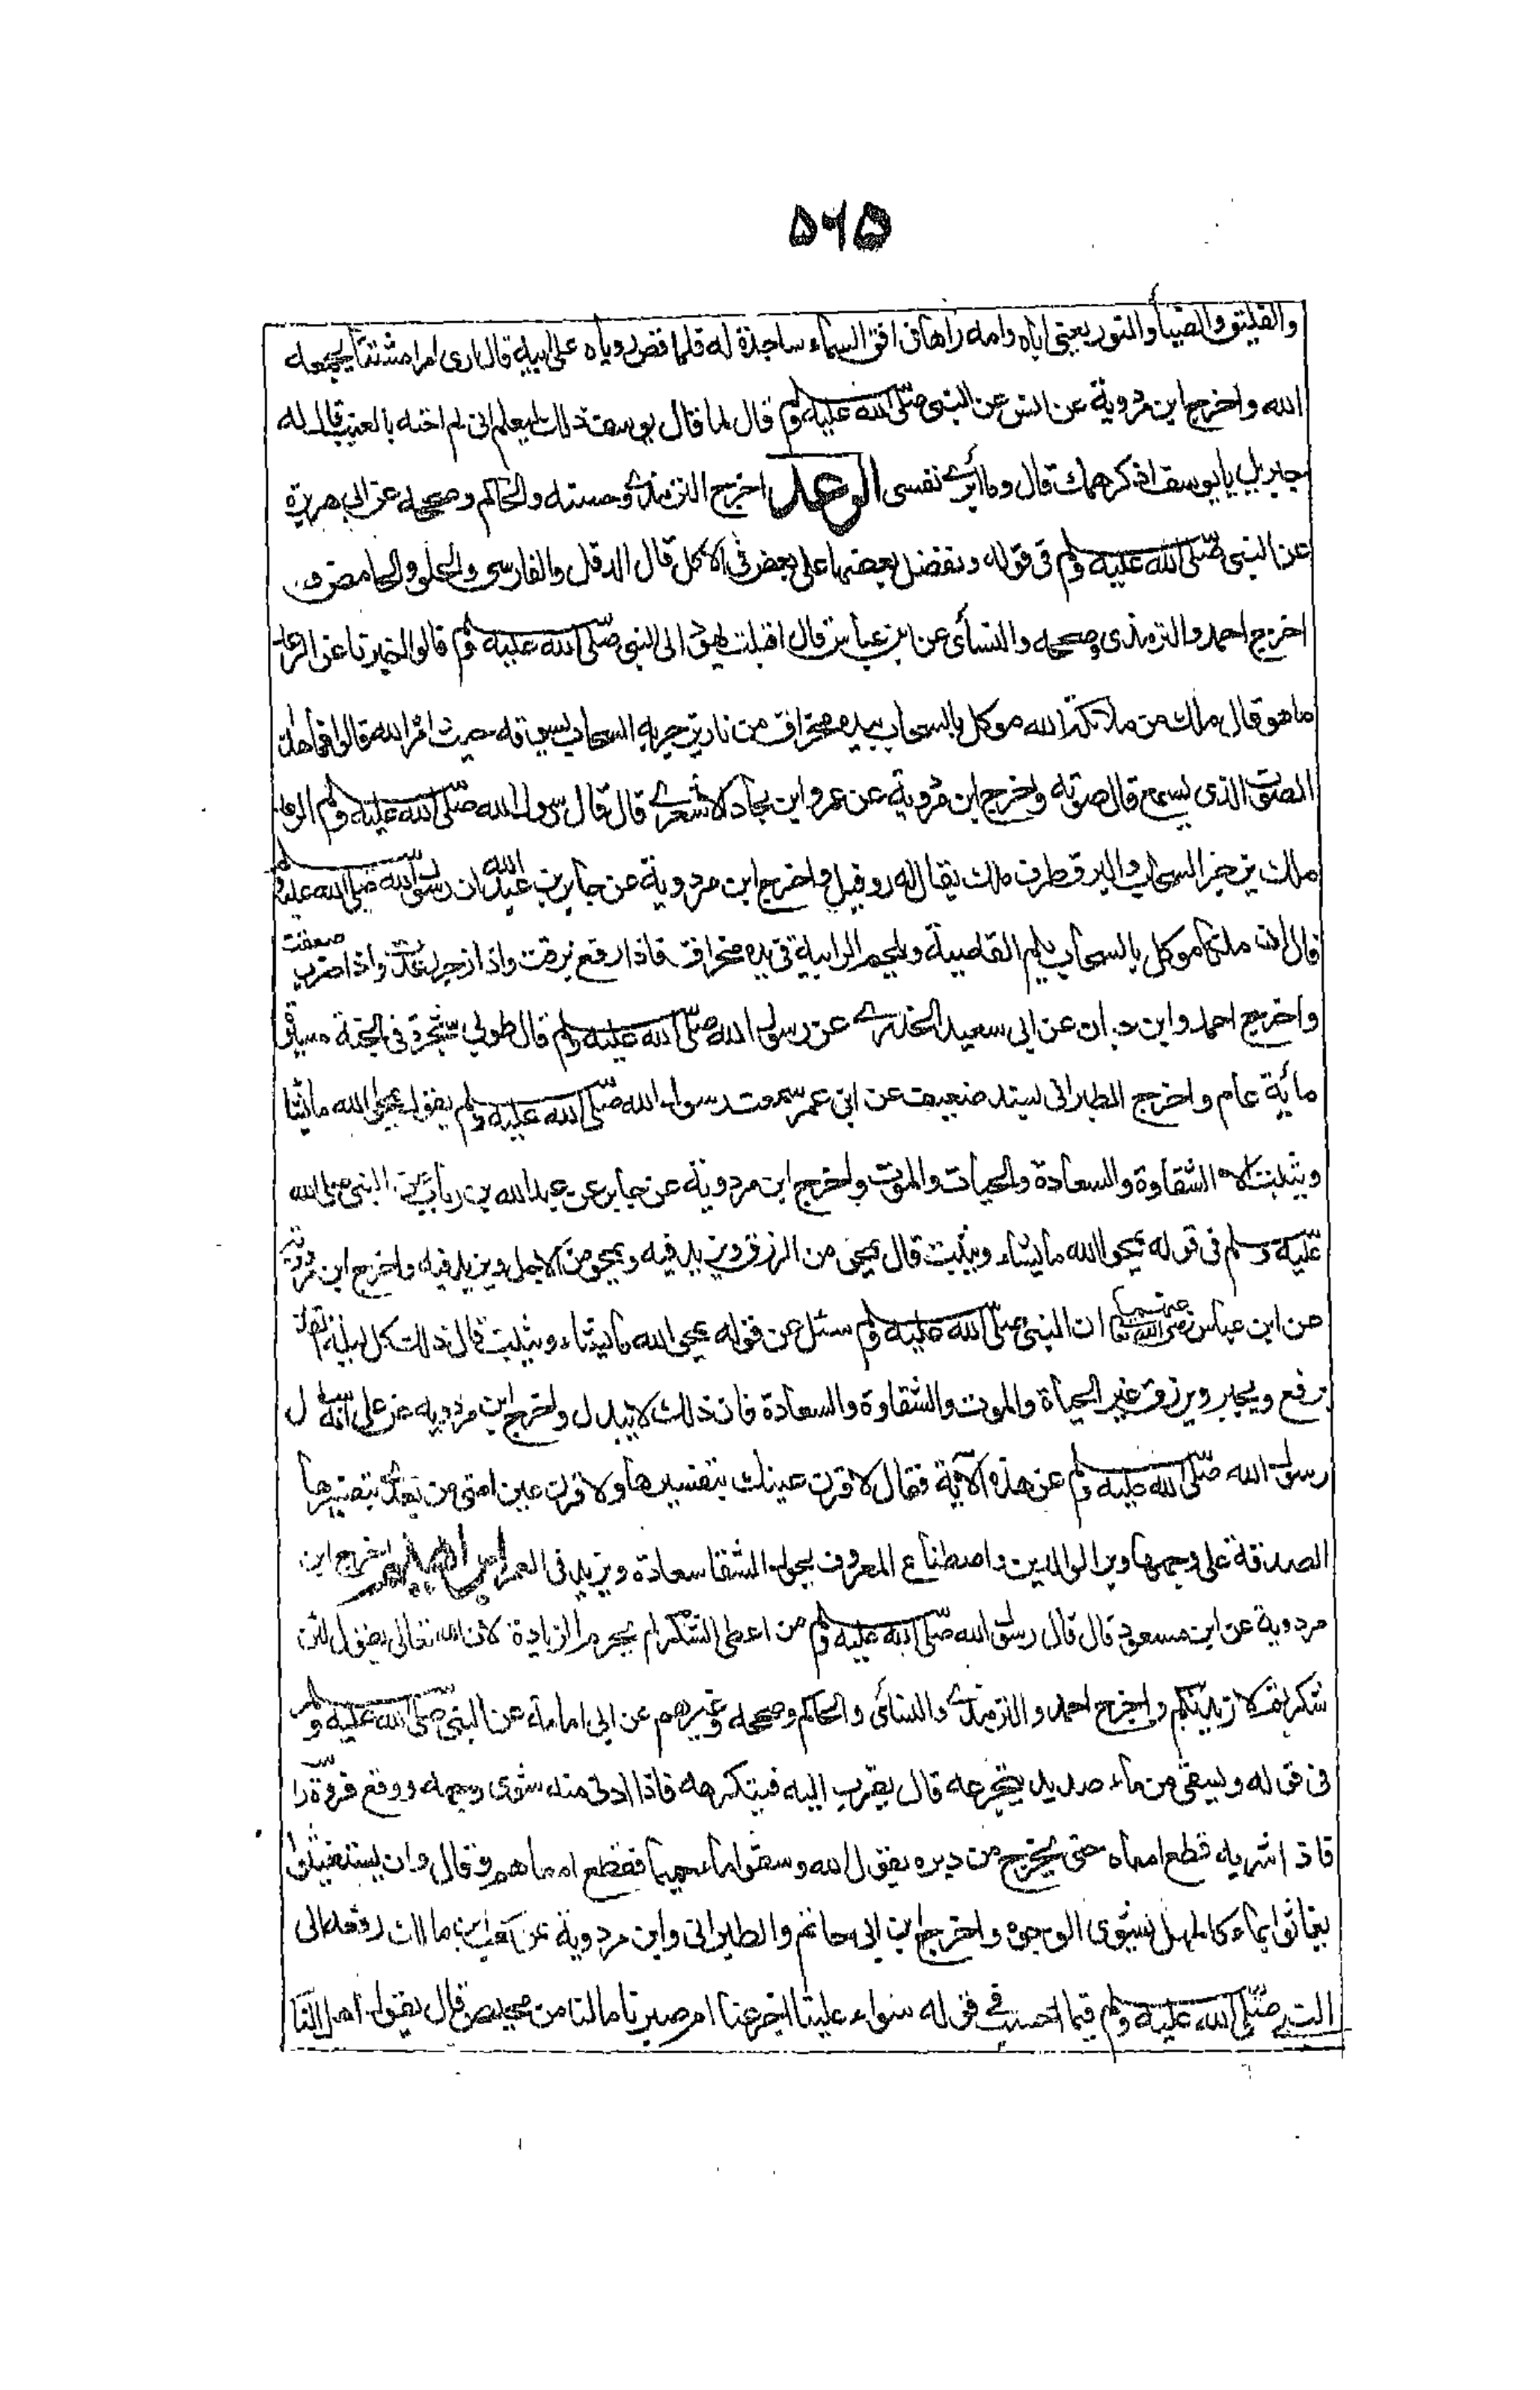 ۵۶۵
والفيلق والضياء والنور يعنى اباه وامه راها فى افق السماء ساجدة له فلما قص روياه على ابيه قال ارى امرا مشتتا يجمعه
الله واخرج ابن مردوية عن انس عن النبى صلى الله عليه وسلم قال لما قال يوسف ذلك ليعلم انى لم اخنه بالغيب قال له
جبريل يا يوسف اذكر همك قال وما ابرئ نفسى الرعد اخرج الترمذى وحسنه والحاكم وصححه عن ابى هريرة
عن النبى صلى الله عليه وسلم فى قوله ونفضل بعضها على بعض فى الاكل قال الدقل والفارسى والحلو والحامض و
اخرج احمد والترمذى وصححه والنسائى عن ابن عباس قال اقبلت يهود الى النبى صلى الله عليه وسلم قالوا اخبرنا عن الرعد
ما هو قال ملك من ملائكة الله موكل بالسحاب بيده مخراق من نار يزجر به السحاب يسوقه حيث امر الله قالوا فما هذا
الصوت الذى يسمع قال صوته واخرج ابن مردوية عن عمرو ابن بجاد الاشعرى قال قال رسول الله صلى الله عليه وسلم الرعد
ملك يزجر السحاب والبرق طرف ملك يقال له روفيل واخرج ابن مردوية عن جابر بن عبد الله ان رسول الله صلى الله عليه وسلم
قال ان ملكا موكل بالسحاب يلم القاصية ويلحم الرابية فى يده مخراق فاذا رفع برقت واذا زجر رعدت واذا ضرب صعقت
واخرج احمد وابن حبان عن ابى سعيد الخدرى عن رسول الله صلى الله عليه وسلم قال طوبى شجرة فى الجنة مسيرة
مائة عام واخرج الطبرانى بسند ضعيف عن ابن عمر سمعت رسول الله صلى الله عليه وسلم يقول يمحو الله ما يشا
ويثبت الا الشقاوة والسعادة والحيات والموت واخرج ابن مردوية عن جابر عن عبد الله بن رباب عن النبى صلى الله
عليه وسلم فى قوله يمحو الله ما يشاء ويثبت قال يمحى من الرزق ويزيد فيه ويمحو من الاجل ويزيد فيه واخرج ابن مردوية
عن ابن عباس رضى الله تعا عنهما ان النبى صلى الله عليه وسلم سئل عن قوله يمحى الله ما يشاء ويثبت قال ذلك كل ليلة القدر
يرفع ويجبر ويرزق غير الحياة والموت والشقاوة والسعادة فان ذلك لا يبدل واخرج ابن مردويه عن على انه سئل
رسول الله صلى الله عليه وسلم عن هذه الآية فقال لاقرن عينك بتفسيرها ولاقرن عين امتى من بعدى بتفسيرها
الصدقة على وجهها وبر الوالدين واصطناع المعروف يحول الشقا سعادة ويزيد فى العمر ابراهيم اخرج ابن
مردوية عن ابن مسعود قال قال رسول الله صلى الله عليه وسلم من اعطى الشكر لم يحرم الزيادة لان الله تعالى يقول لئن
شكرتم لازيدنكم واخرج احمد والترمذى والنسائى والحاكم وصححه وغيرهم عن ابى امامة عن النبى صلى الله عليه وسلم
فى قوله ويسقى من ماء صديد يتجرعه قال يقرب اليه فيتكرهه فاذا ادنى منه شوى وجهه ووقع فروة را
فاذا شربه قطع امعاه حتى يخرج من دبره يقول الله وسقوا ماء حميما فقطع امعاهم وقال وان يستغيثوا
يغاثوا بماء كالمهل يشوى الوجوه واخرج ابن ابى حاتم والطبرانى وابن مردوية عن كعب بن مالك رفعه الى
النبى صلى الله عليه وسلم فيما احسب فى قوله سواء علينا اجزعنا ام صبرنا ما لنا من محيص قال يقول اهل النا